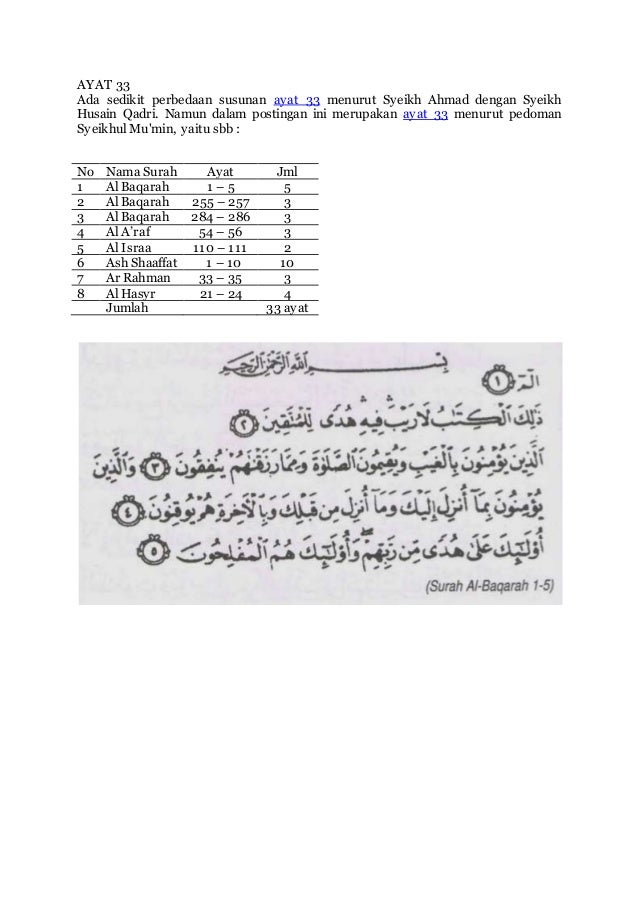 AYAT 33
Ada sedikit perbedaan susunan ayat 33 menurut Syeikh Ahmad dengan Syeikh
Husain Qadri. Namun dalam postingan ini merupakan ayat 33 menurut pedoman
Syeikhul Mu'min, yaitu sbb :
No Nama Surah Ayat Jml
1 Al Baqarah 1 – 5 5
2 Al Baqarah 255 – 257 3
3 Al Baqarah 284 – 286 3
4 Al A'raf 54 – 56 3
5 Al Israa 110 – 111 2
6 Ash Shaaffat 1 – 10 10
7 Ar Rahman 33 – 35 3
8 Al Hasyr 21 – 24 4
Jumlah 33 ayat
بِسْمِ اللَّهِ الرَّحْمَٰنِ الرَّحِيمِ
الٓمٓ ﴿١﴾
ذَٰلِكَ الْكِتَابُ لَا رَيْبَ ۛ فِيهِ ۛ هُدًى لِّلْمُتَّقِينَ ﴿٢﴾
الَّذِينَ يُؤْمِنُونَ بِالْغَيْبِ وَيُقِيمُونَ الصَّلَوٰةَ وَمِمَّا رَزَقْنَٰهُمْ يُنفِقُونَ ﴿٣﴾ وَالَّذِينَ
يُؤْمِنُونَ بِمَا أُنزِلَ إِلَيْكَ وَمَا أُنزِلَ مِن قَبْلِكَ وَبِالْآخِرَةِ هُمْ يُوقِنُونَ ﴿٤﴾
أُوْلَٰئِكَ عَلَىٰ هُدًى مِّن رَّبِّهِمْ ۖ وَأُوْلَٰئِكَ هُمُ الْمُفْلِحُونَ ﴿٥﴾
(Surah Al-Baqarah 1-5)